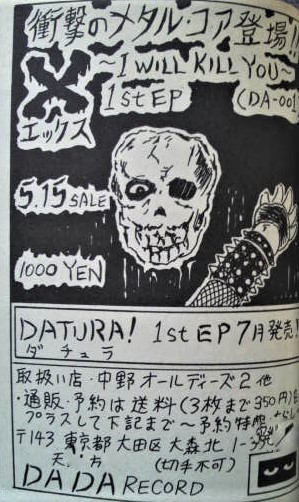 衝撃のメタル・コア登場!!
X
~I WILL KILL YOU~
エックス
1st EP
(DA-001
5.15 SALE
1000 YEN
DATURA! 1st EP 7月発売!
ダ チュ ラ
取扱い店・中野オールディーズ2 他
・通販・予約は送料(3枚まで350円)
プラスして下記まで~予約特典
〒143 東京都大田区大森北1-3
方
(切手不可)
DADA RECORD